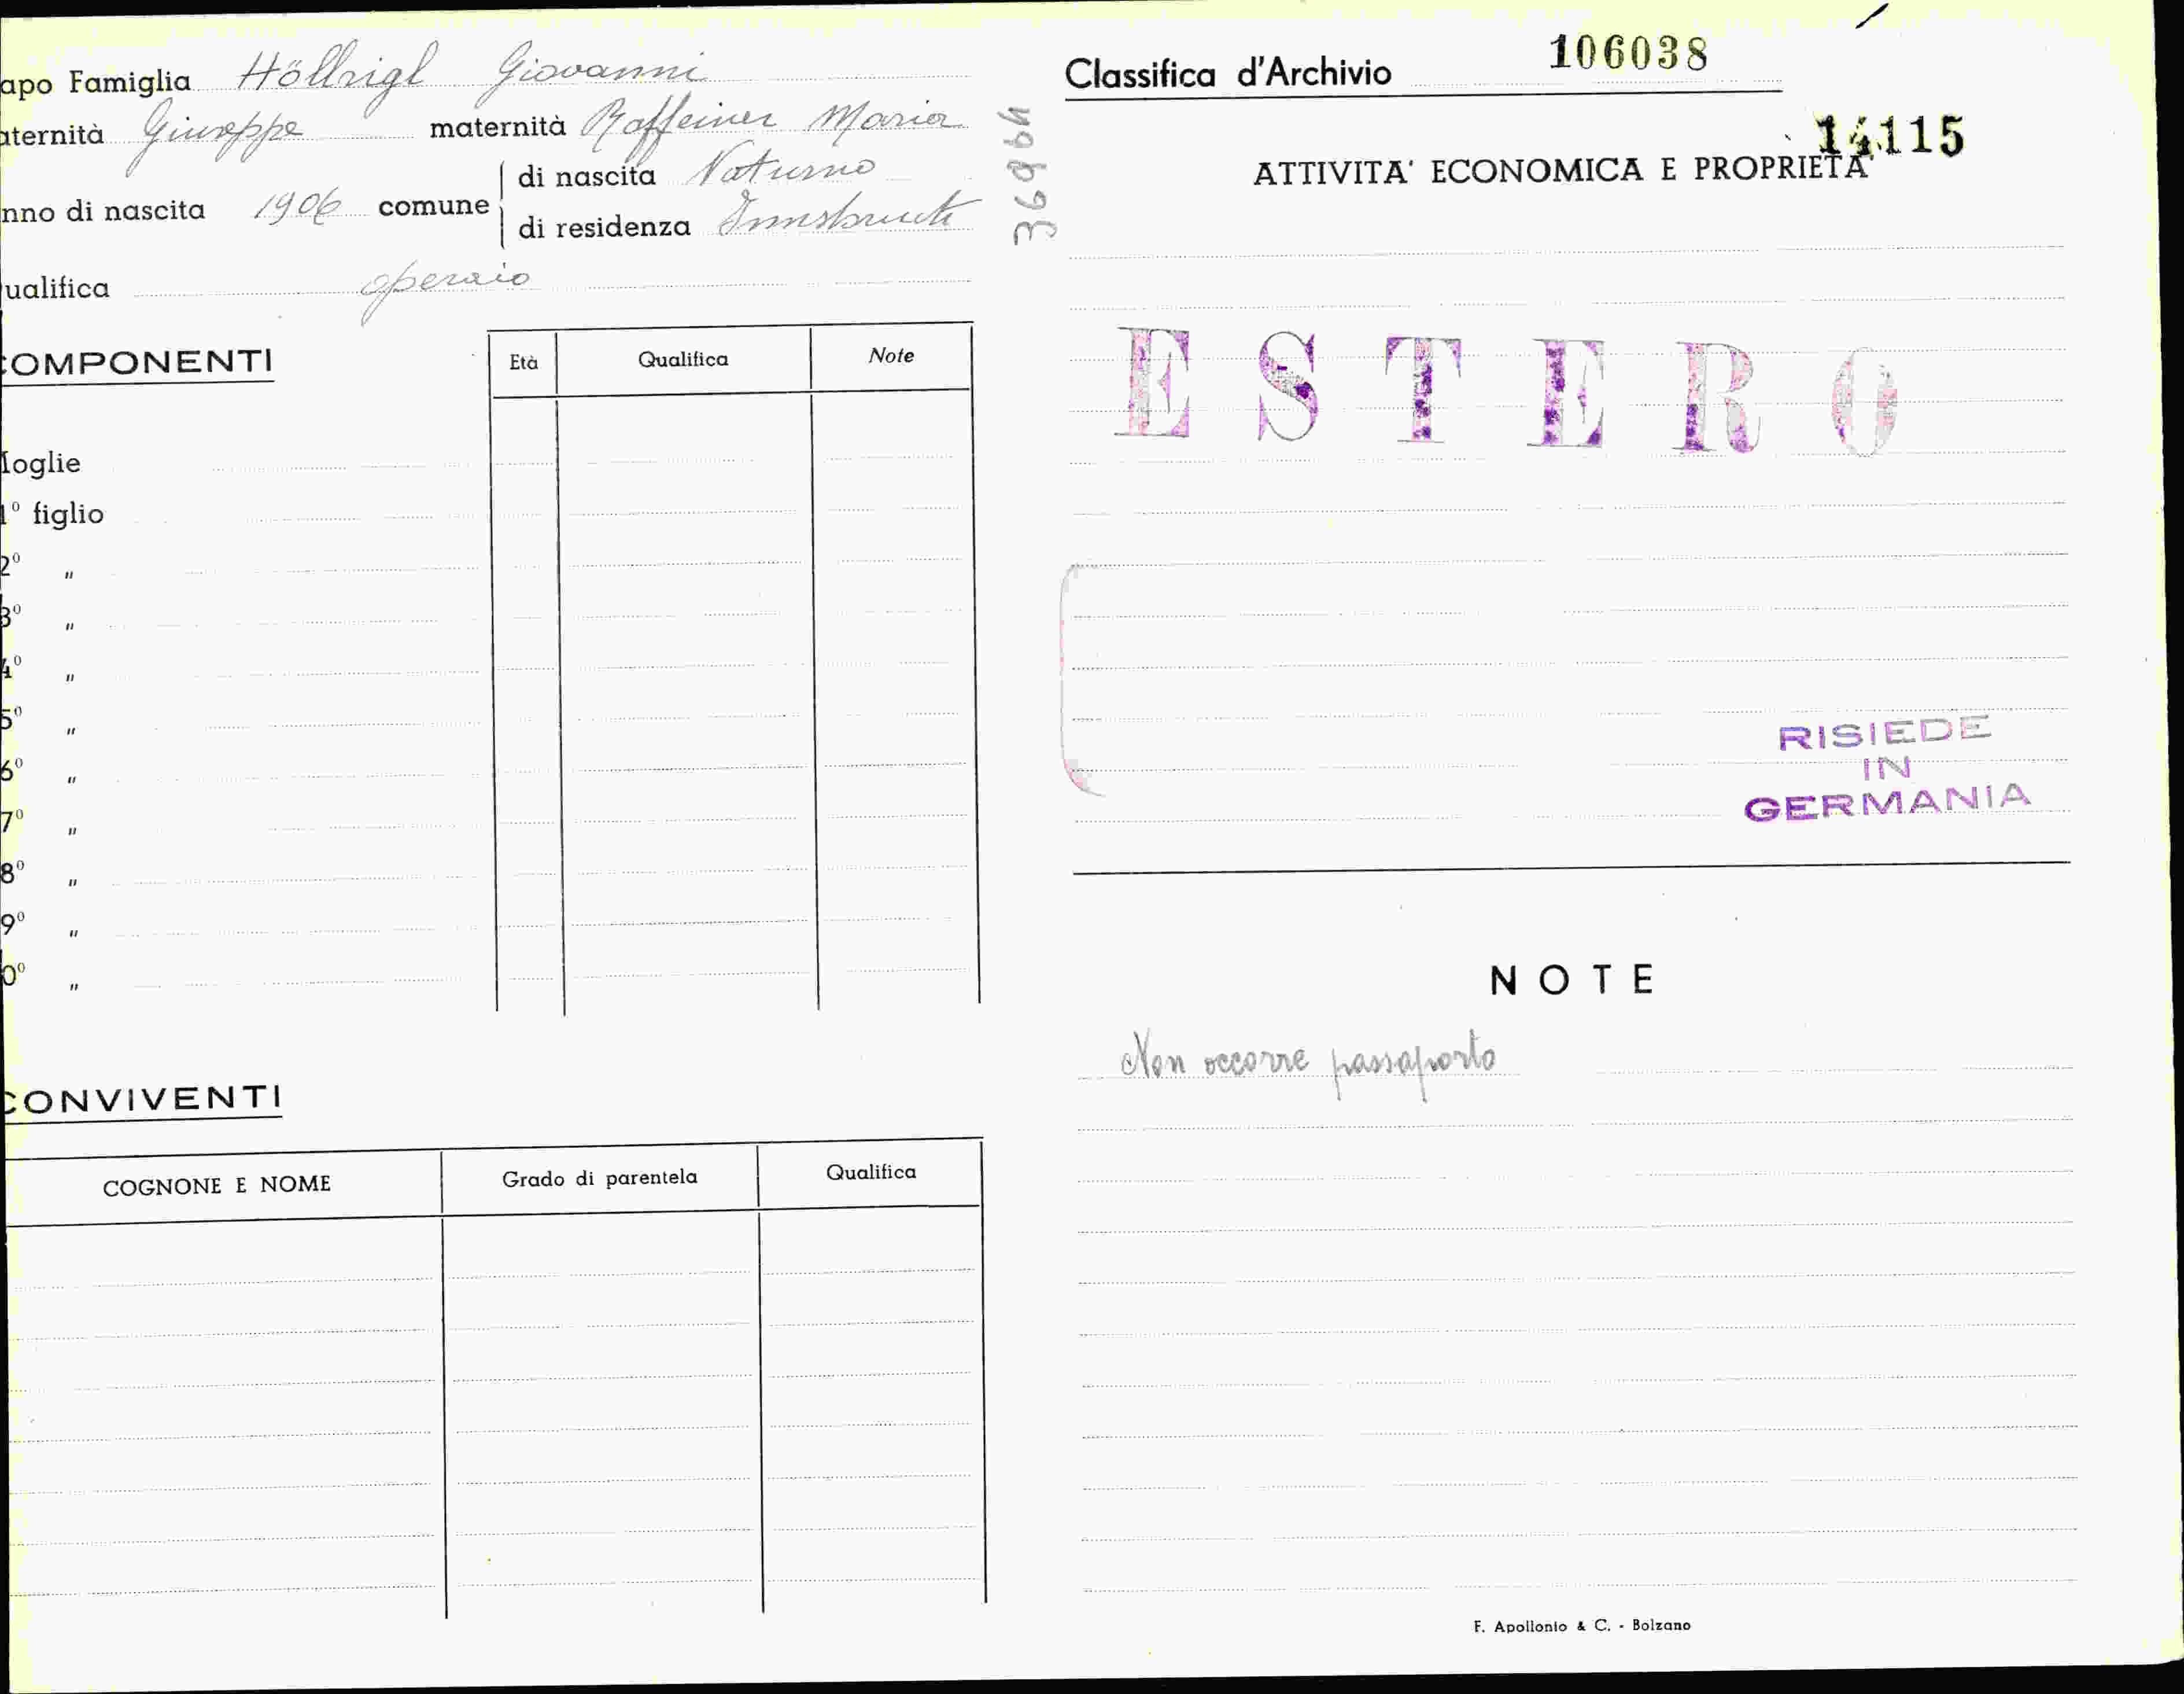 apo Famiglia Höllrigl Giovanni
aternità Giuseppe maternità Raffeiner Maria
nno di nascita 1906 comune di nascita Naturno
di residenza Innsbruck
ualifica operaio
COMPONENTI
Età Qualifica Note
Moglie
1º figlio
2º "
3º "
4º "
5º "
6º "
7º "
8º "
9º "
0º "
CONVIVENTI
COGNONE E NOME Grado di parentela Qualifica
Classifica d'Archivio 106038
14115
ATTIVITA' ECONOMICA E PROPRIETA'
ESTERO
RISIEDE
IN
GERMANIA
NOTE
Non occorre passaporto
F. Apollonio & C. - Bolzano